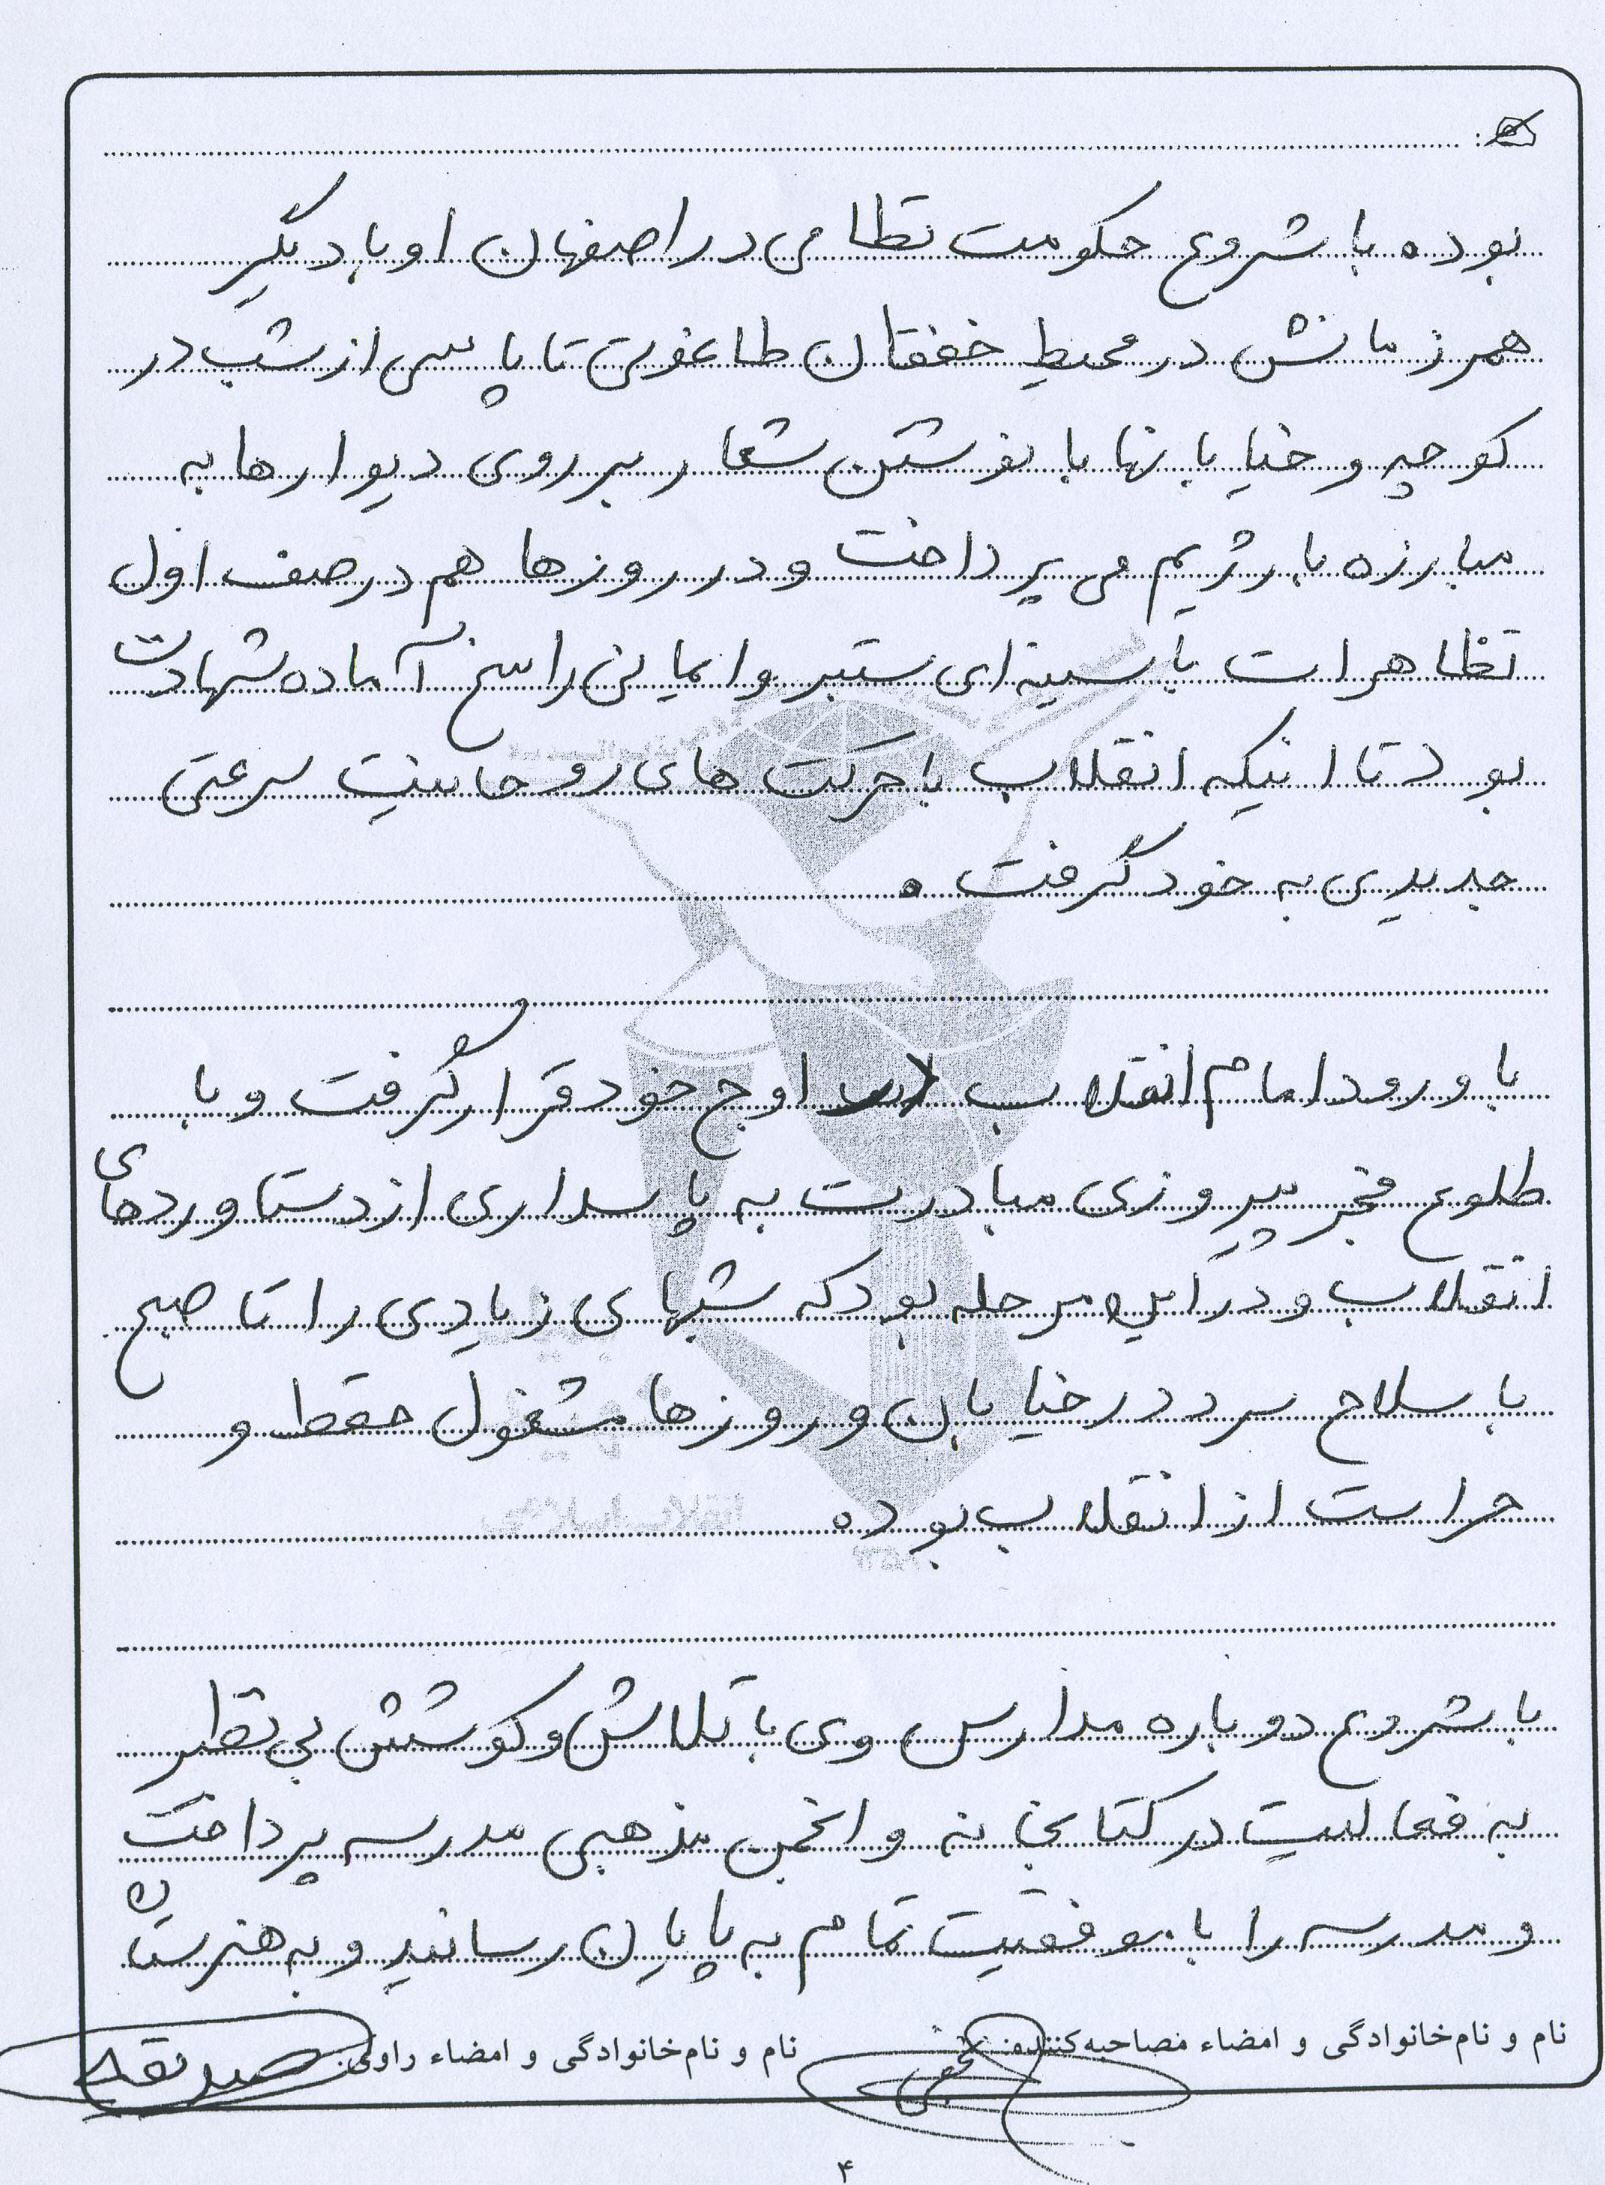 بوده با شروع حکومت نظامی در اصفهان او با دیگر
همرزمانش در محیط خفقان طاغوتی تا پاسی از شب در
کوچه و خیابانها با نوشتن شعار بر روی دیوارها به
مبارزه با رژیم می پرداخت و در روزها هم در صف اول
تظاهرات با سینه ای ستبر و ایمانی راسخ آماده شهادت
بود تا اینکه انقلاب با حرکت های روحانیت سرعتی
جدیدی به خود گرفت .
با ورود امام انقلاب در اوج خود قرار گرفت و با
طلوع فجر پیروزی مبادرت به پاسداری از دستاوردهای
انقلاب و در این مرحله بود که شبهای زیادی را تا صبح
با سلاح سرد در خیابان و روزها مشغول حفظ و
حراست از انقلاب بوده
با شروع دوباره مدارس وی با تلاش و کوشش بی نظیر
به فعالیت در کتابخانه و انجمن مذهبی مدرسه پرداخت
و مدرسه را با موفقیت تمام به پایان رسانید و به هنرستان
نام و نام‌خانوادگی و امضاء مصاحبه‌کننده: نام و نام‌خانوادگی و امضاء راوی: صدیقه
۴